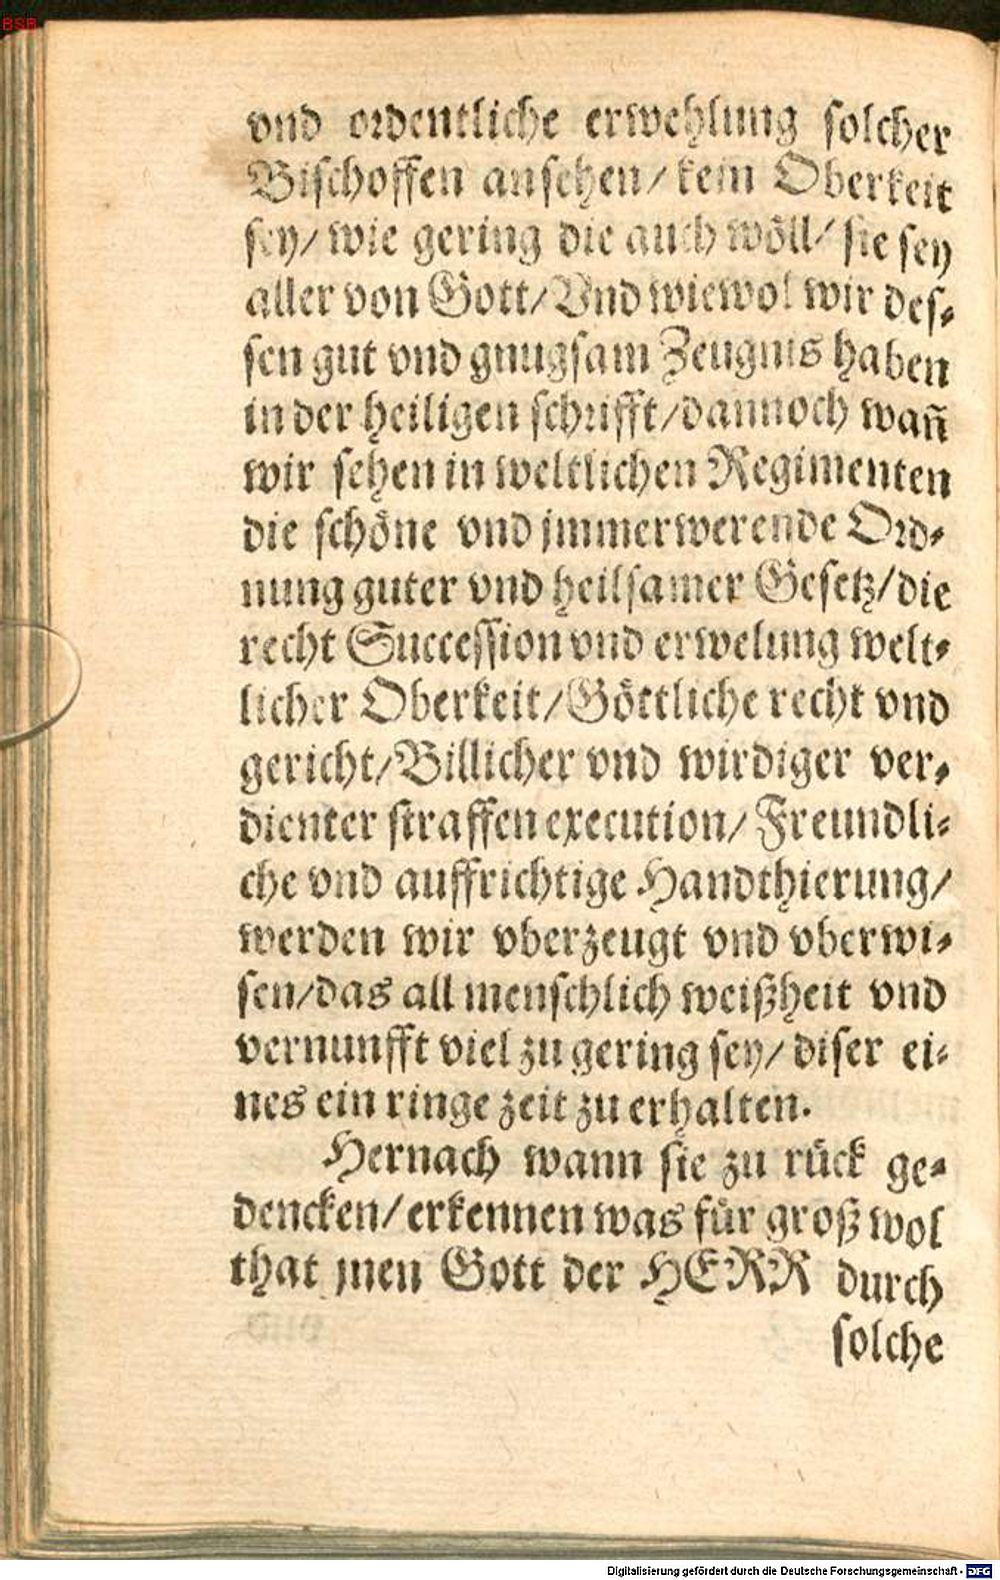 BSB
vnd ordentliche erwehlung solcher
Bischoffen ansehen/ kein Oberkeit
sey/ wie gering die auch wöll/ sie sey
aller von Gott/ Vnd wiewol wir des⸗
sen gut vnd gnugsam Zeugnis haben
in der heiligen schrifft/ dannoch wañ
wir sehen in weltlichen Regimenten
die schöne vnd jmmerwerende Ord⸗
nung guter vnd heilsamer Gesetz/ die
recht Succession vnd erwelung welt⸗
licher Oberkeit/ Göttliche recht vnd
gericht/ Billicher vnd wirdiger ver⸗
dienter straffen execution/ Freundli⸗
che vnd auffrichtige Handthierung/
werden wir vberzeugt vnd vberwi⸗
sen/ das all menschlich weißheit vnd
vernunfft viel zu gering sey/ diser ei⸗
nes ein ringe zeit zu erhalten.
Hernach wann sie zu rück ge⸗
dencken/ erkennen was für groß wol
that jnen Gott der HERR durch
solche
Digitalisierung gefördert durch die Deutsche Forschungsgemeinschaft - DFG